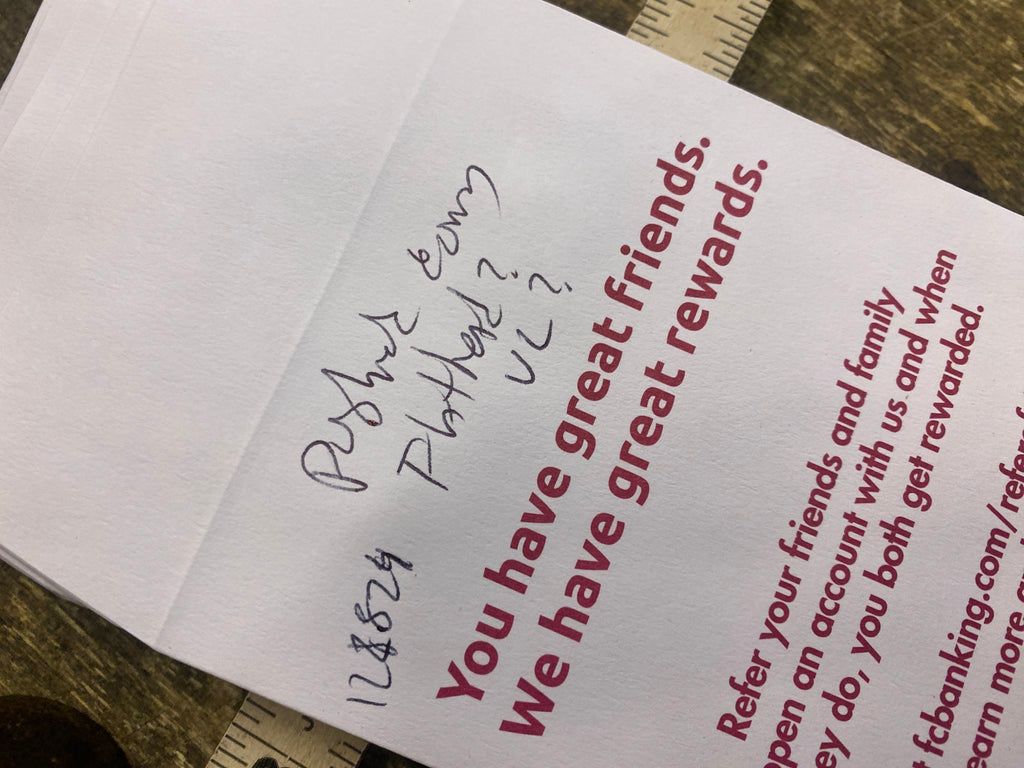 128824 Pushed
Plathead?
UL?
You have great friends.
We have great rewards.
Refer your friends and family
open an account with us and when
ey do, you both get rewarded.
t fcbanking.com/refer
earn more